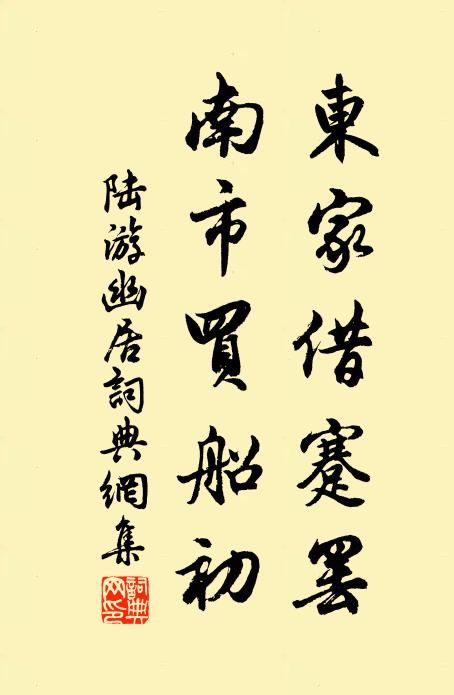 東家借蹇罷
南市買船初
陆游幽居詞典網集
詞典
网印